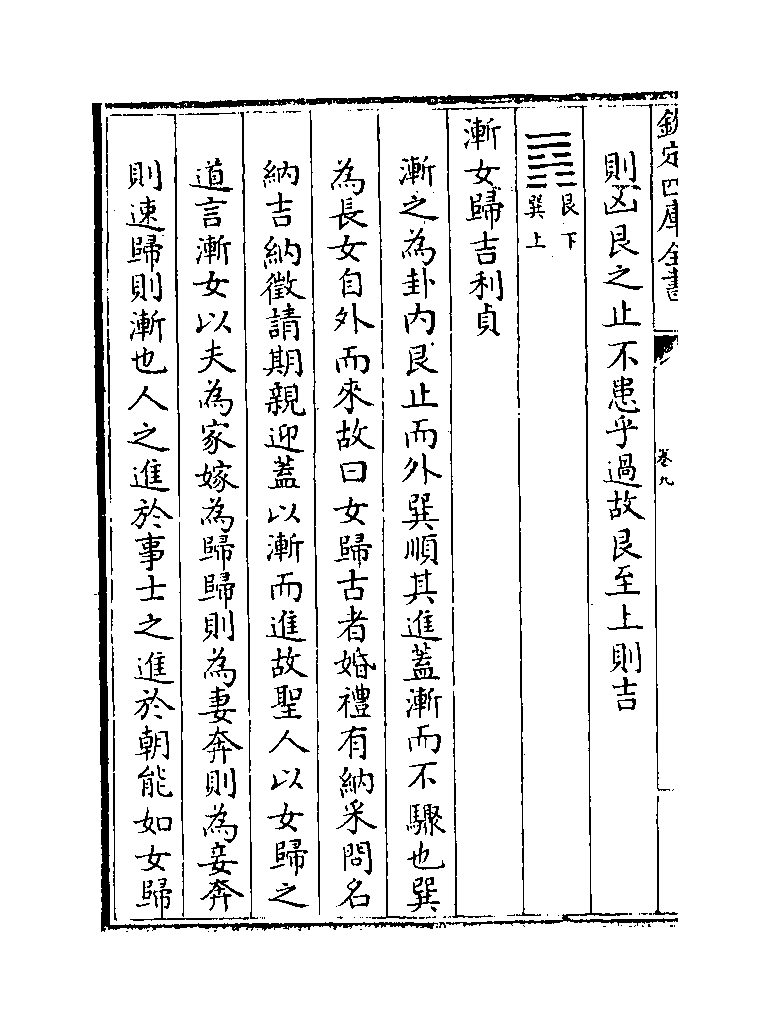 欽定四庫全書
卷九
則凶艮之止不患乎過故艮至上則吉
䷴艮下
巽上
漸女歸吉利貞
漸之為卦内艮止而外巽順其進蓋漸而不驟也巽
為長女自外而來故曰女歸古者婚禮有納采問名
納吉納徵請期親迎蓋以漸而進故聖人以女歸之
道言漸女以夫為家嫁為歸歸則為妻奔則為妾奔
則速歸則漸也人之進於事士之進於朝能如女歸